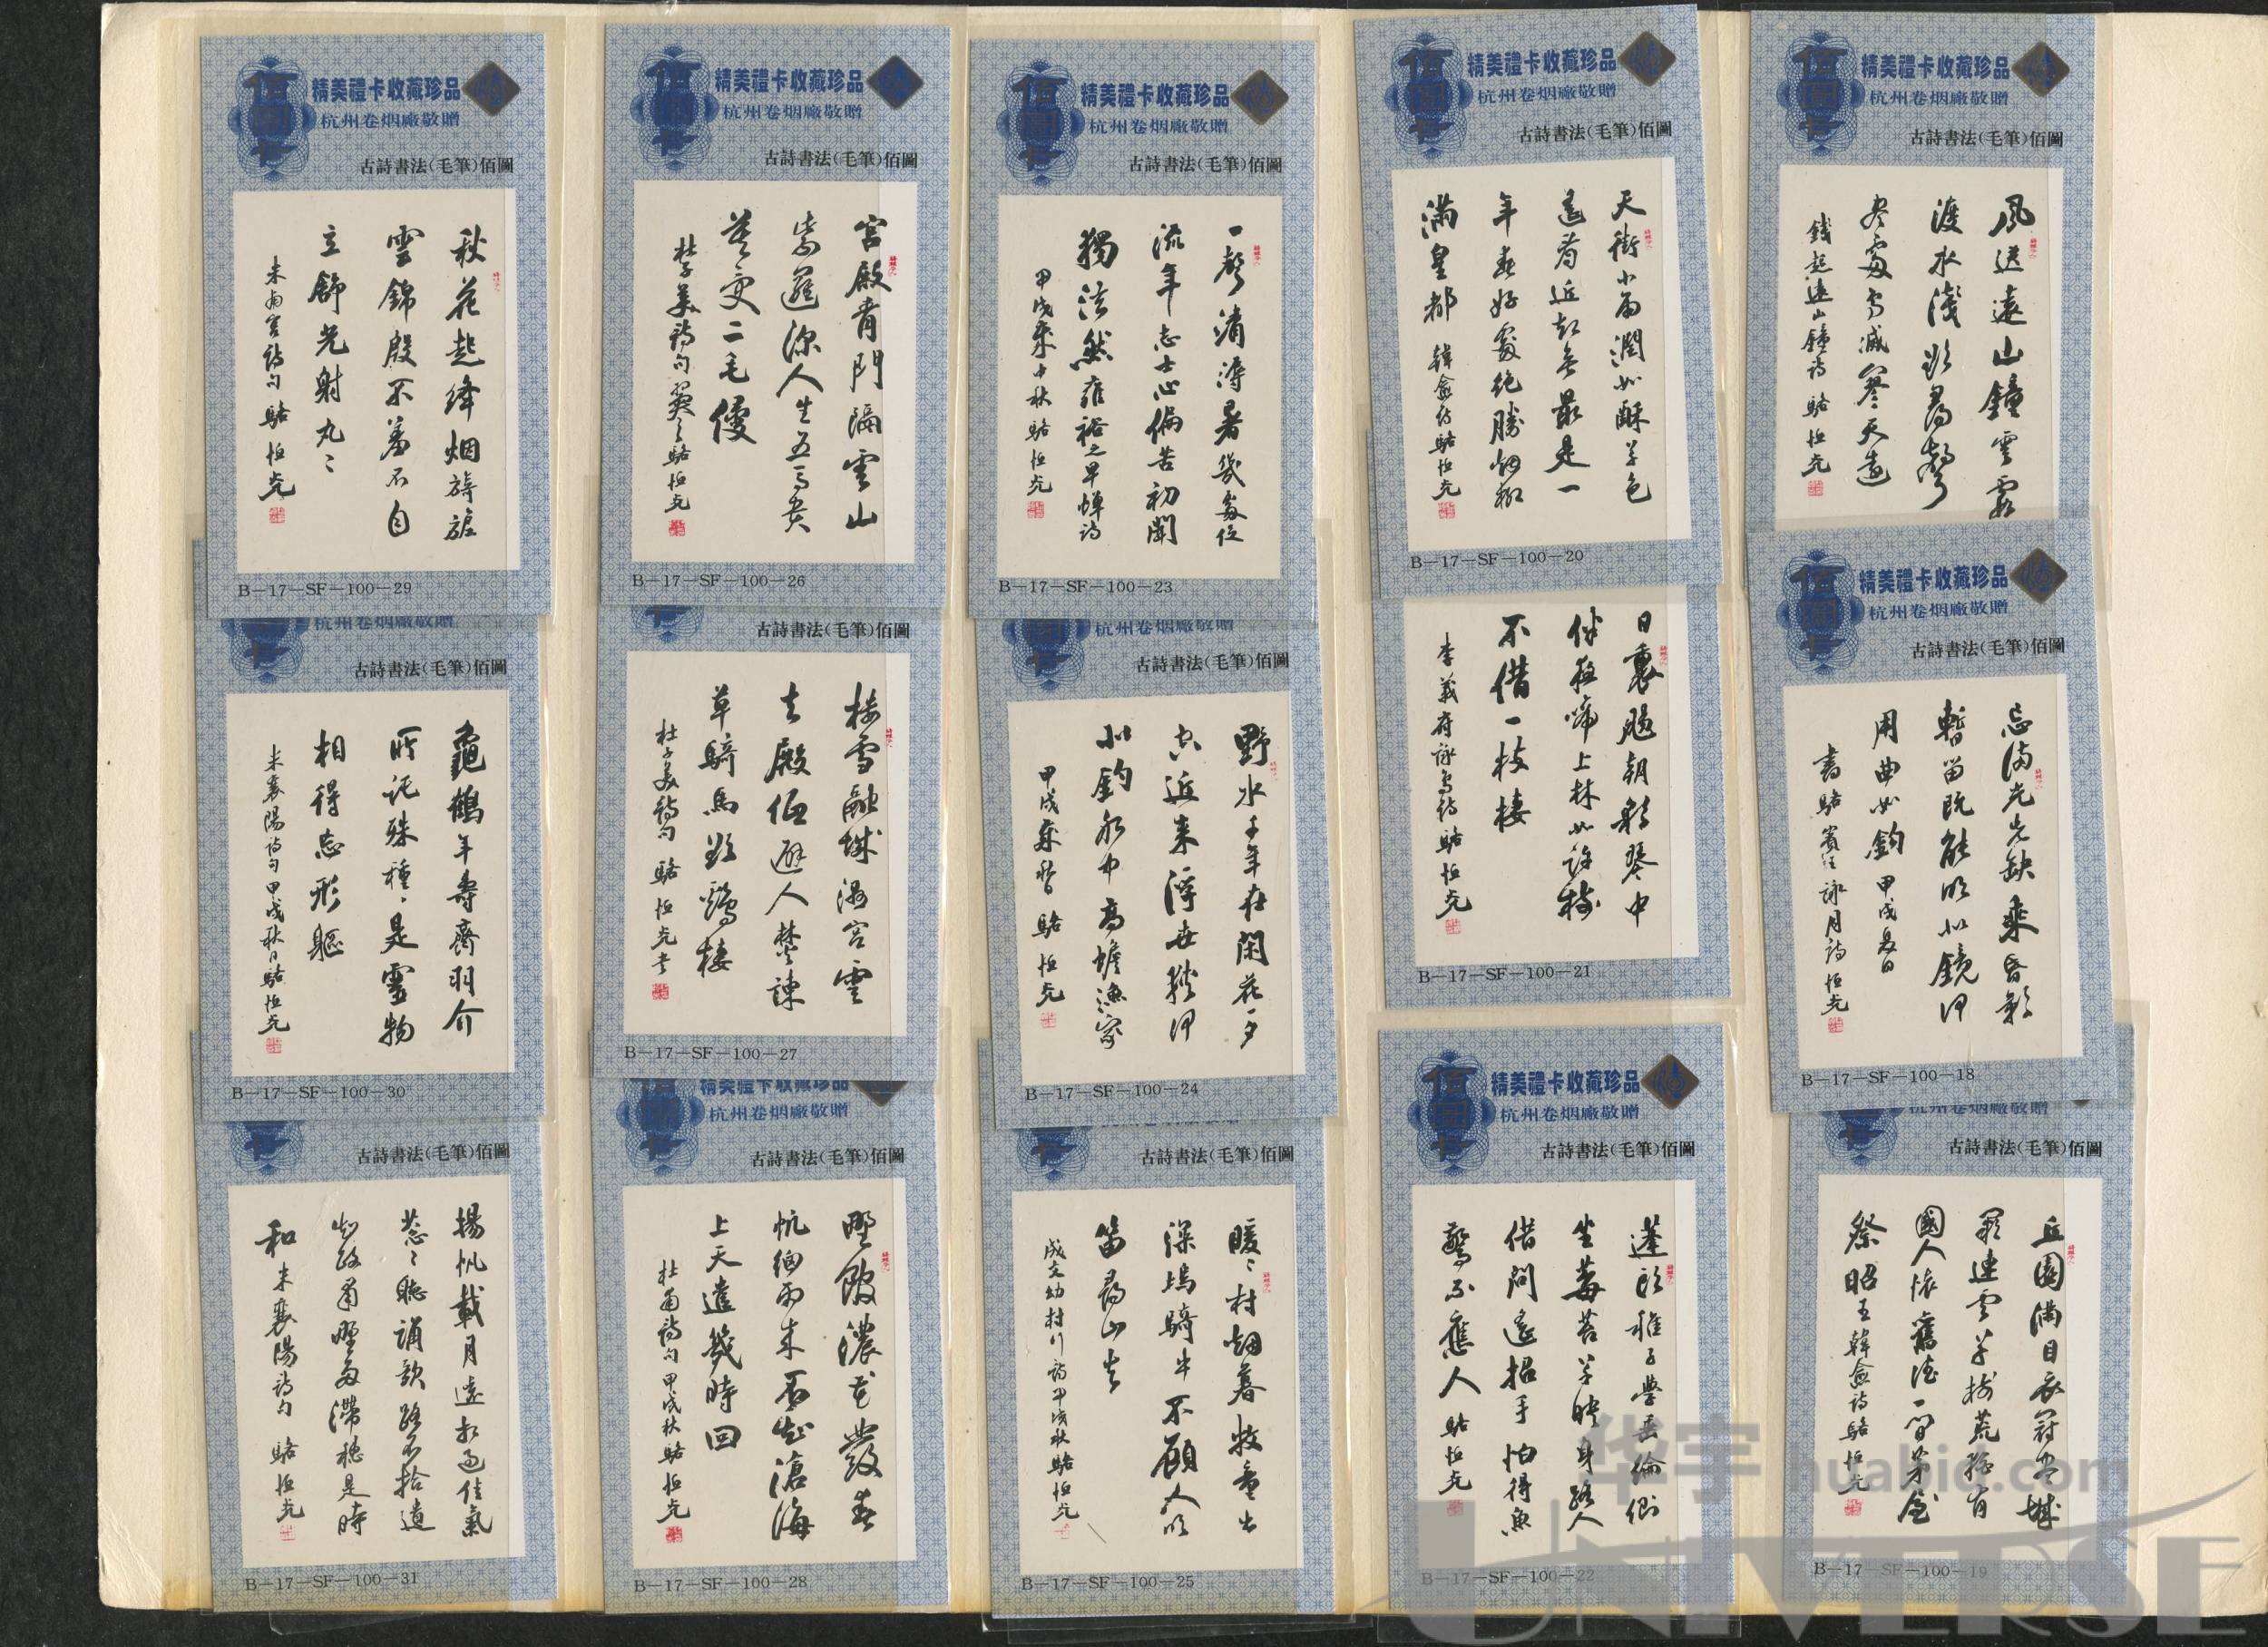 精美禮卡收藏珍品
杭州卷烟廠敬贈
古詩書法(毛筆)佰圖
秋花起绛烟旖旎
雲錦殷不羞不自
立舒光射丸〻
米南宮詩句 駱恒光
B-17-SF-100-29
精美禮卡收藏珍品
杭州卷烟廠敬贈
古詩書法(毛筆)佰圖
宮殿青門隔雲山
紫邏深人生五馬貴
莫受二毛侵
杜子美詩句 翼之駱恒光
B-17-SF-100-26
精美禮卡收藏珍品
杭州卷烟廠敬贈
古詩書法(毛筆)佰圖
一聲清溽暑幾處促
流年志士心偏苦初聞
獨泫然雍裕之早蟬詩
甲戌秊中秋駱恒光
B-17-SF-100-23
精美禮卡收藏珍品
杭州卷烟廠敬贈
古詩書法(毛筆)佰圖
天街小雨潤如酥草色
遙看近却無最是一
年春好處絕勝烟柳
滿皇都 韓愈詩駱恒光
B-17-SF-100-20
精美禮卡收藏珍品
杭州卷烟廠敬贈
古詩書法(毛筆)佰圖
風送遠山鐘雲霞
渡水淺欲尋聲
盡處鳥滅寒天遠
錢起遠山鐘詩 駱恒光
杭州卷烟廠敬贈
古詩書法(毛筆)佰圖
龜鶴年壽齊羽介
所託殊種〻是靈物
相得忘形軀
米襄陽詩句甲戌秋日駱恒光
B-17-SF-100-30
古詩書法(毛筆)佰圖
樓雪融城濕宮雲
去殿低避人焚諫
草騎馬欲鷄棲
杜子美詩句 駱恒光書
B-17-SF-100-27
杭州卷烟廠敬贈
古詩書法(毛筆)佰圖
野水千年在閑花一夕
空近來浮世狹何
似釣船中高蟾漁家
甲戌秊 駱恒光
B-17-SF-100-24
日裏颺朝彩琴中
伴夜啼上林如許樹
不借一枝棲
李義府詠烏詩駱恒光
B-17-SF-100-21
精美禮卡收藏珍品
杭州卷烟廠敬贈
古詩書法(毛筆)佰圖
忌滿光先缺乘昏影
暫留既能明似鏡何
用曲如鈎甲戌夏日
書駱賓王詠月詩 恒光
B-17-SF-100-18
古詩書法(毛筆)佰圖
揚帆載月遠相過佳氣
葱〻聽誦歌路不拾遺
知政肅野多滯穗是時
和 米襄陽詩句 駱恒光
B-17-SF-100-31
精美禮卡收藏珍品
杭州卷烟廠敬贈
古詩書法(毛筆)佰圖
野館濃花發春
帆細雨來不知滄海
上天遣幾時回
杜甫詩句甲戌秋駱恒光
B-17-SF-100-28
古詩書法(毛筆)佰圖
暖〻村烟暮牧童出
深塢騎牛不顧人吹
笛尋山去
成文幼村行詩甲戌秋駱恒光
B-17-SF-100-25
精美禮卡收藏珍品
杭州卷烟廠敬贈
古詩書法(毛筆)佰圖
蓬頭稚子學垂綸側
坐莓苔草映身路人
借問遙招手怕得魚
驚不應人 駱恒光
B-17-SF-100-22
杭州卷烟廠敬贈
古詩書法(毛筆)佰圖
丘園滿目衣冠盡城
闕連雲草樹荒猶有
國人懷舊德一間茅屋
祭昭王韓愈詩駱恒光
B-17-SF-100-19
华宇 huabid.com
UNIVERSE